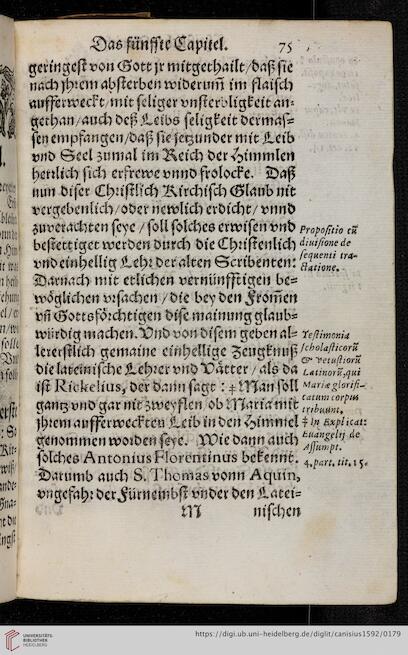 Das fünffte Capitel. 75
geringest von Gott jr mitgethailt / daß sie
nach jhrem absterben widerum̃ im flaisch
aufferweckt / mit seliger vnsterbligkeit an-
gethan / auch deß Leibs seligkeit dermas-
sen empfangen / daß sie jetzunder mit Leib
vnd Seel zumal im Reich der Himmlen
herrlich sich erfrewe vnnd frolocke. Daß
nun diser Christlich Kirchisch Glaub nit
vergebenlich / oder newlich erdicht / vnnd
zuverachten seye / soll solches erwisen vnd
bestettiget werden durch die Christenlich
vnd einhellig Lehr der alten Scribenten:
Darnach mit etlichen vernünfftigen be-
wöglichen vrsachen / die bey den From̃en
vn̄ Gottsförchtigen dise mainung glaub-
würdig machen. Vnd von disem geben al-
lererstlich gemaine einhellige Zeugknuß
die lateinische Lehrer vnd Vätter / als da
ist Rickelius, der dann sagt : ‡ Man soll
gantz vnd gar nit zweyflen / ob Maria mit
jhrem aufferweckten Leib in den Himmel
genommen worden seye. Wie dann auch
solches Antonius Florentinus bekennt.
Darumb auch S. Thomas vonn Aquin,
vngefahr der Fürnembst vnder den Latei-
M nischen
Propositio cū
diuisione de
sequenti tra-
ctatione.
Testimonia
scholasticorū
& vetustiorū
Latinorū, qui
Mariæ glorifi-
catum corpus
tribuunt.
‡ In Explicat:
Euangelij de
Assumpt.
4. part. tit. 15.
UNIVERSITÄTS-
BIBLIOTHEK
HEIDELBERG
https://digi.ub.uni-heidelberg.de/diglit/canisius1592/0179